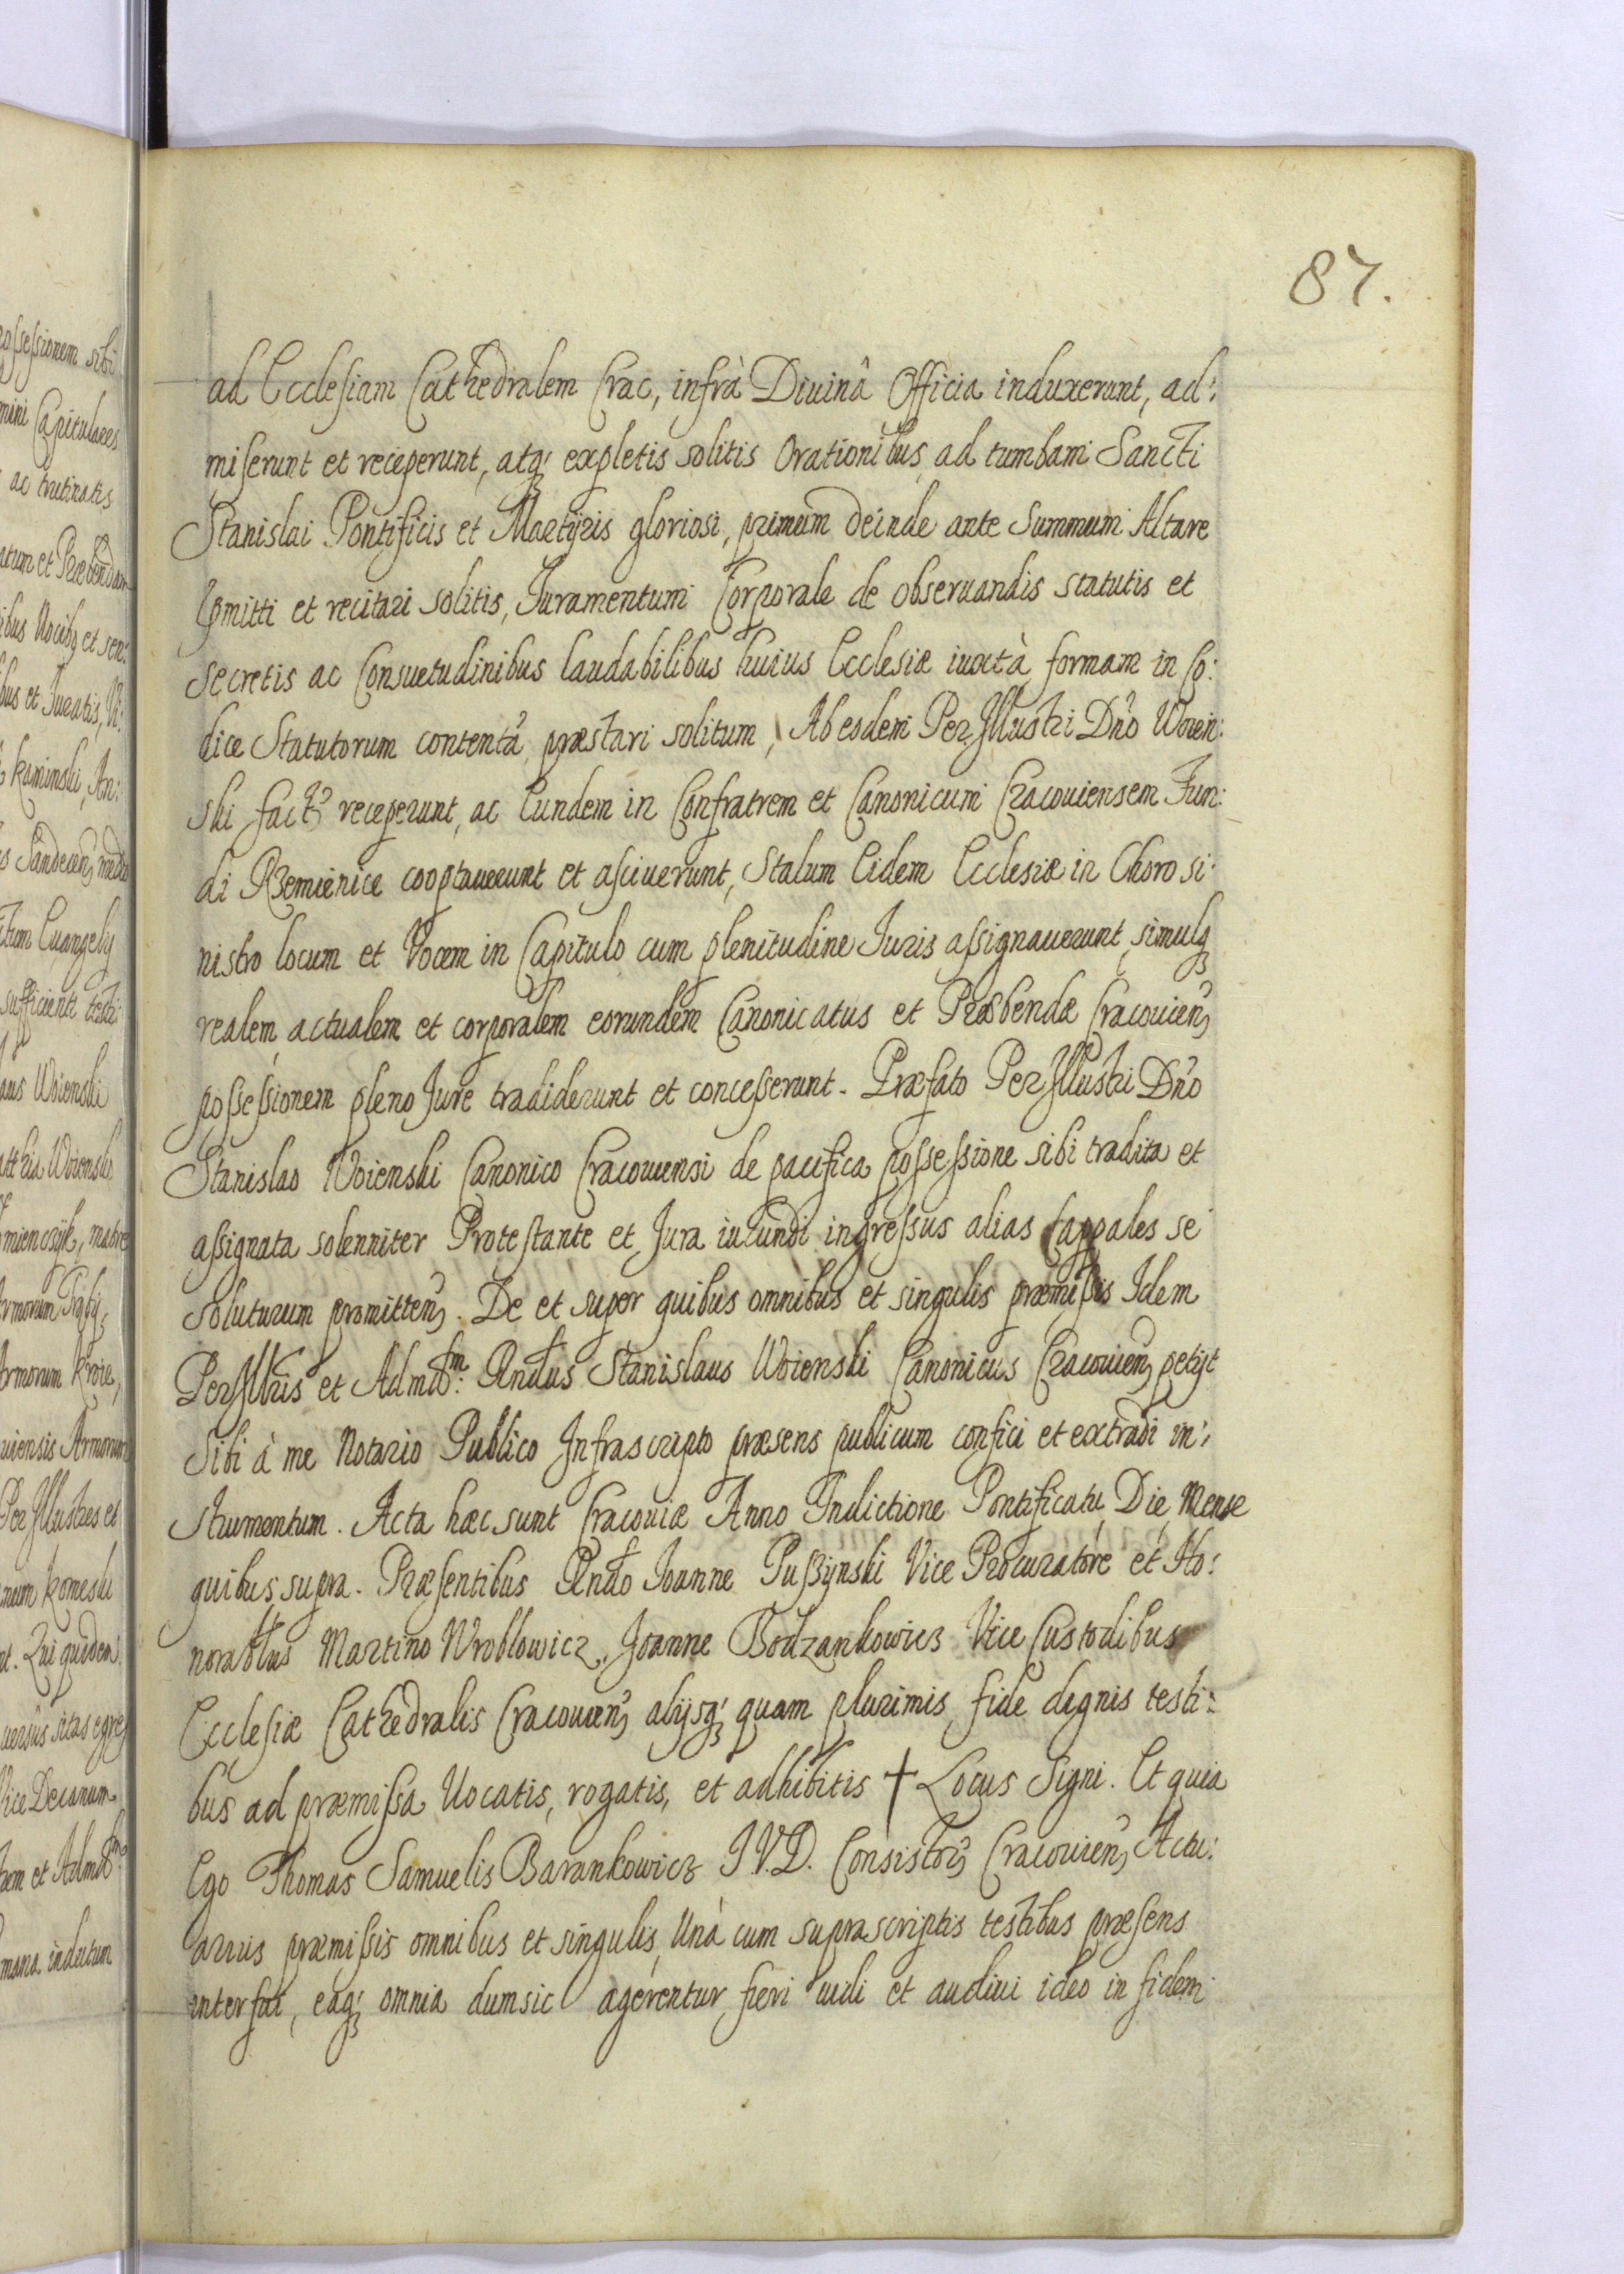 87.
ad Ecclesiam Cathedralem Crac, infrà Diuinâ Officia induxerunt, ad:
miserunt et receperunt, atq; expletis solitis Orationibus ad tumbam Sancti
Stanislai Pontificis et Martyris gloriosi, primum deinde ante Summum Altare
promitti et recitari solitis, Juramentum Corporale de obseruandis statutis et
secretis ac Consuetudinibus laudabilibus huius Ecclesiæ iuxtà formam in Co:
dice Statutorum contentâ præstari solitum, Ab eodem Per Jllustri Dno Woien:
ski fact' receperunt, ac Eundem in Confratrem et Canonicum Cracouiensem Fun:
di Rzemienice cooptauerunt et asciuerunt, Stalum Eidem Ecclesiæ in Choro si:
nistro locum et Vocem in Capitulo cum plenitudine Juris assignauerunt, simulq;
realem, actualem et corporalem eorundem Canonicatus et Præbendæ Cracouien
possessionem pleno Jure tradiderunt et concesserunt. Præfato Per Jllustri Dno
Stanislao Woienski Canonico Cracouiensi de pacifica possessione sibi tradita et
assignata solenniter Protestante et Jura iucundi ingressus alias Cappales se
soluturum promitten. De et super quibus omnibus et singulis præmissis Idem
Per Jllris et Admdm Rndus Stanislaus Woienski Canonicus Cracouien petijt
Sibi à me Notario Publico Infrascripto præsens publicum confici et extradi in:
strumentum. Acta hæc sunt Cracouiæ Anno Indictione Pontificatu Die Mense
quibus supra. Præsentibus Rndo Joanne Puszynski Vice Procuratore et Ho:
norablbus Martino Wroblowicz, Joanne Bodzankowicz Vice Custodibus
Ecclesiæ Cathedralis Cracouien alijsq; quam plurimis fide dignis testi:
bus ad præmissa Uocatis, rogatis, et adhibitis † Locus Signi. Et quia
Ego Thomas Samuelis Barankowicz J.V.D. Consistor Cracouien Actu:
arius præmissis omnibus et singulis Unà cum suprascriptis testibus præsens
interfui, eaq; omnia dum sic agerentur fieri uidi et audiui ideo in fidem